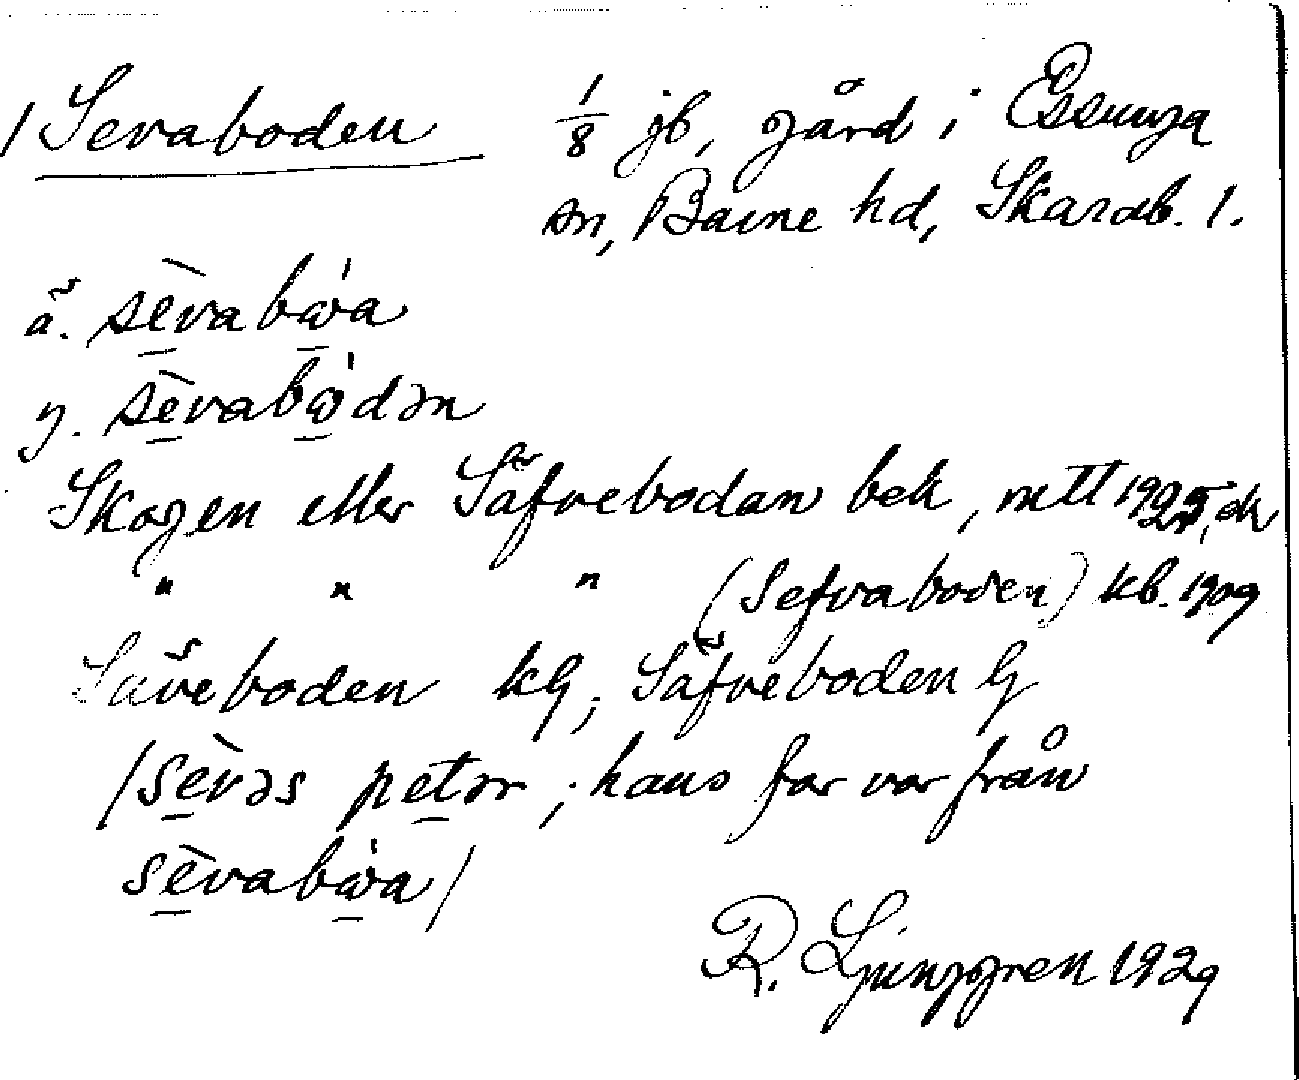 / Sevaboden 1/8 jb, gård i Essunga
sn, Barne hd, Skarab. l.
ä. sèvabὼa
y. sèvabὼdən
Skogen eller Säfvebodan bek, rett 1925, ek
" " " (Sefvaboden) kb. 1909
Säveboden kG; Säfveboden G
/sèvəs petər; hans far var från
sèvabὼa/
R. Ljunggren 1929